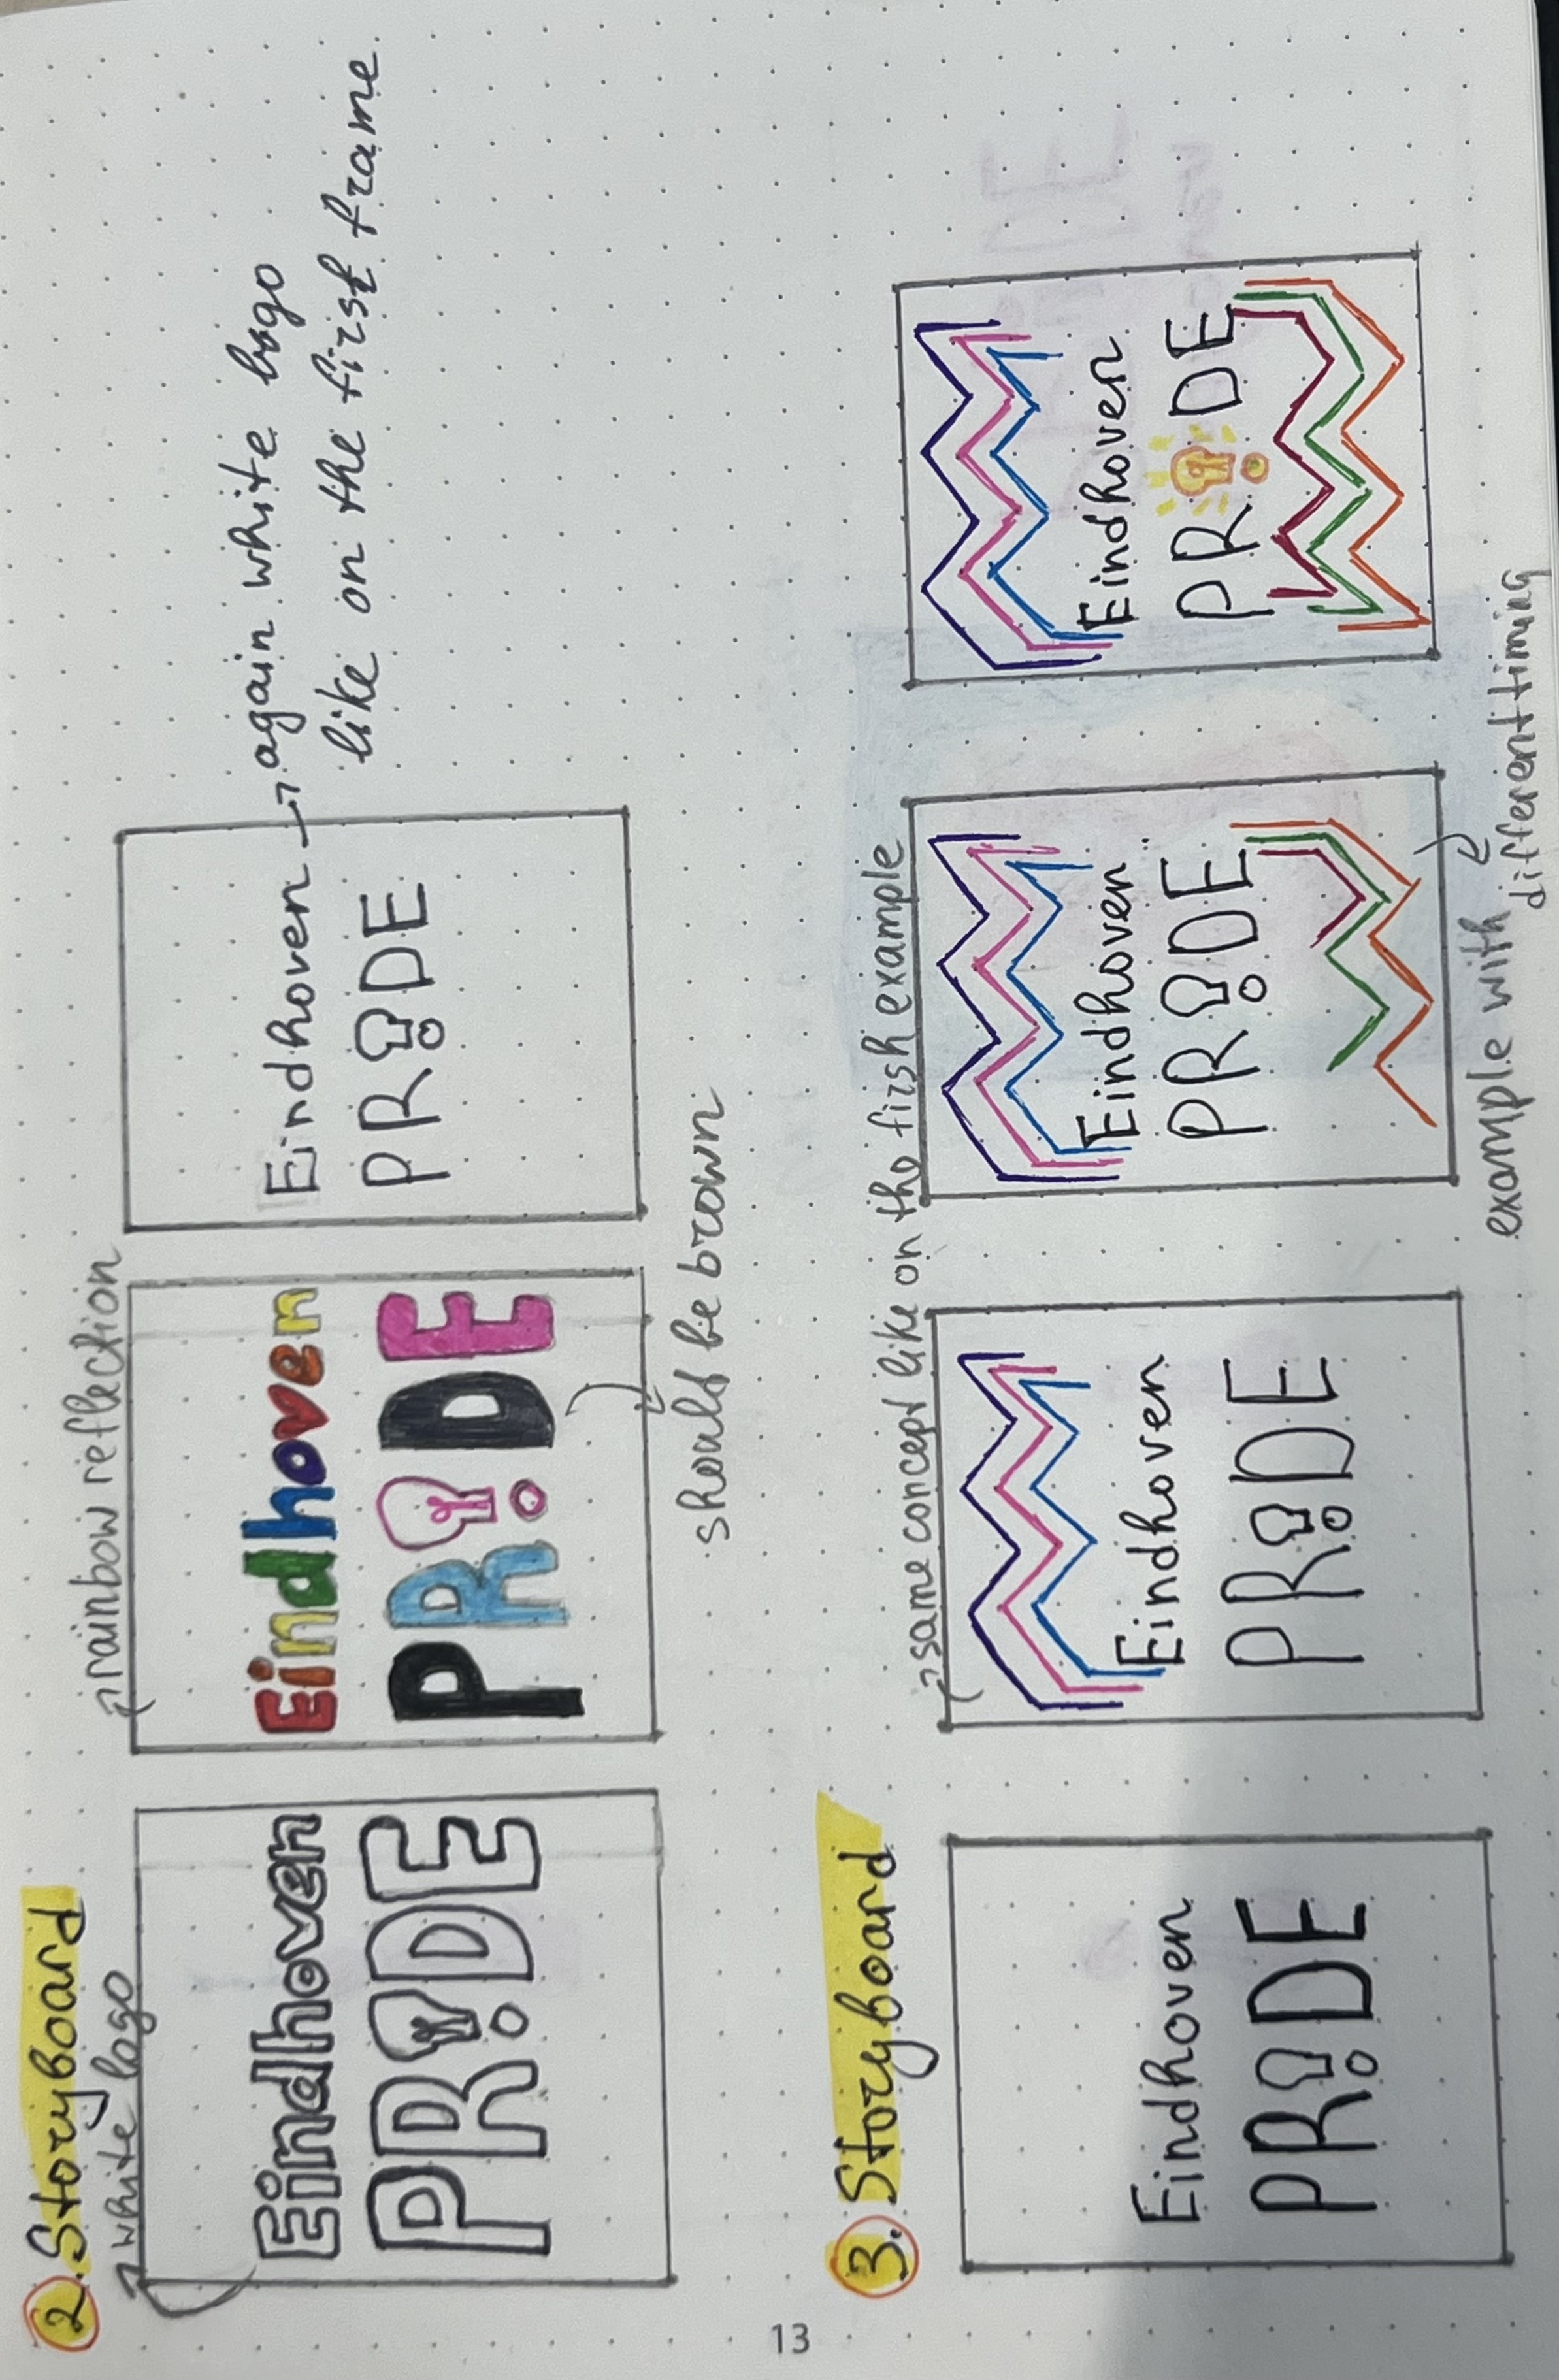 2. Storyboard
white logo
Eindhoven
PRIDE
rainbow reflection
Eindhoven
PRIDE
should be brown
Eindhoven
PRIDE
again white logo
like on the first frame
3. Storyboard
Eindhoven
PRIDE
same concept like on the first example
Eindhoven
PRIDE
Eindhoven
PRIDE
example with
different timing
Eindhoven
PRIDE
13